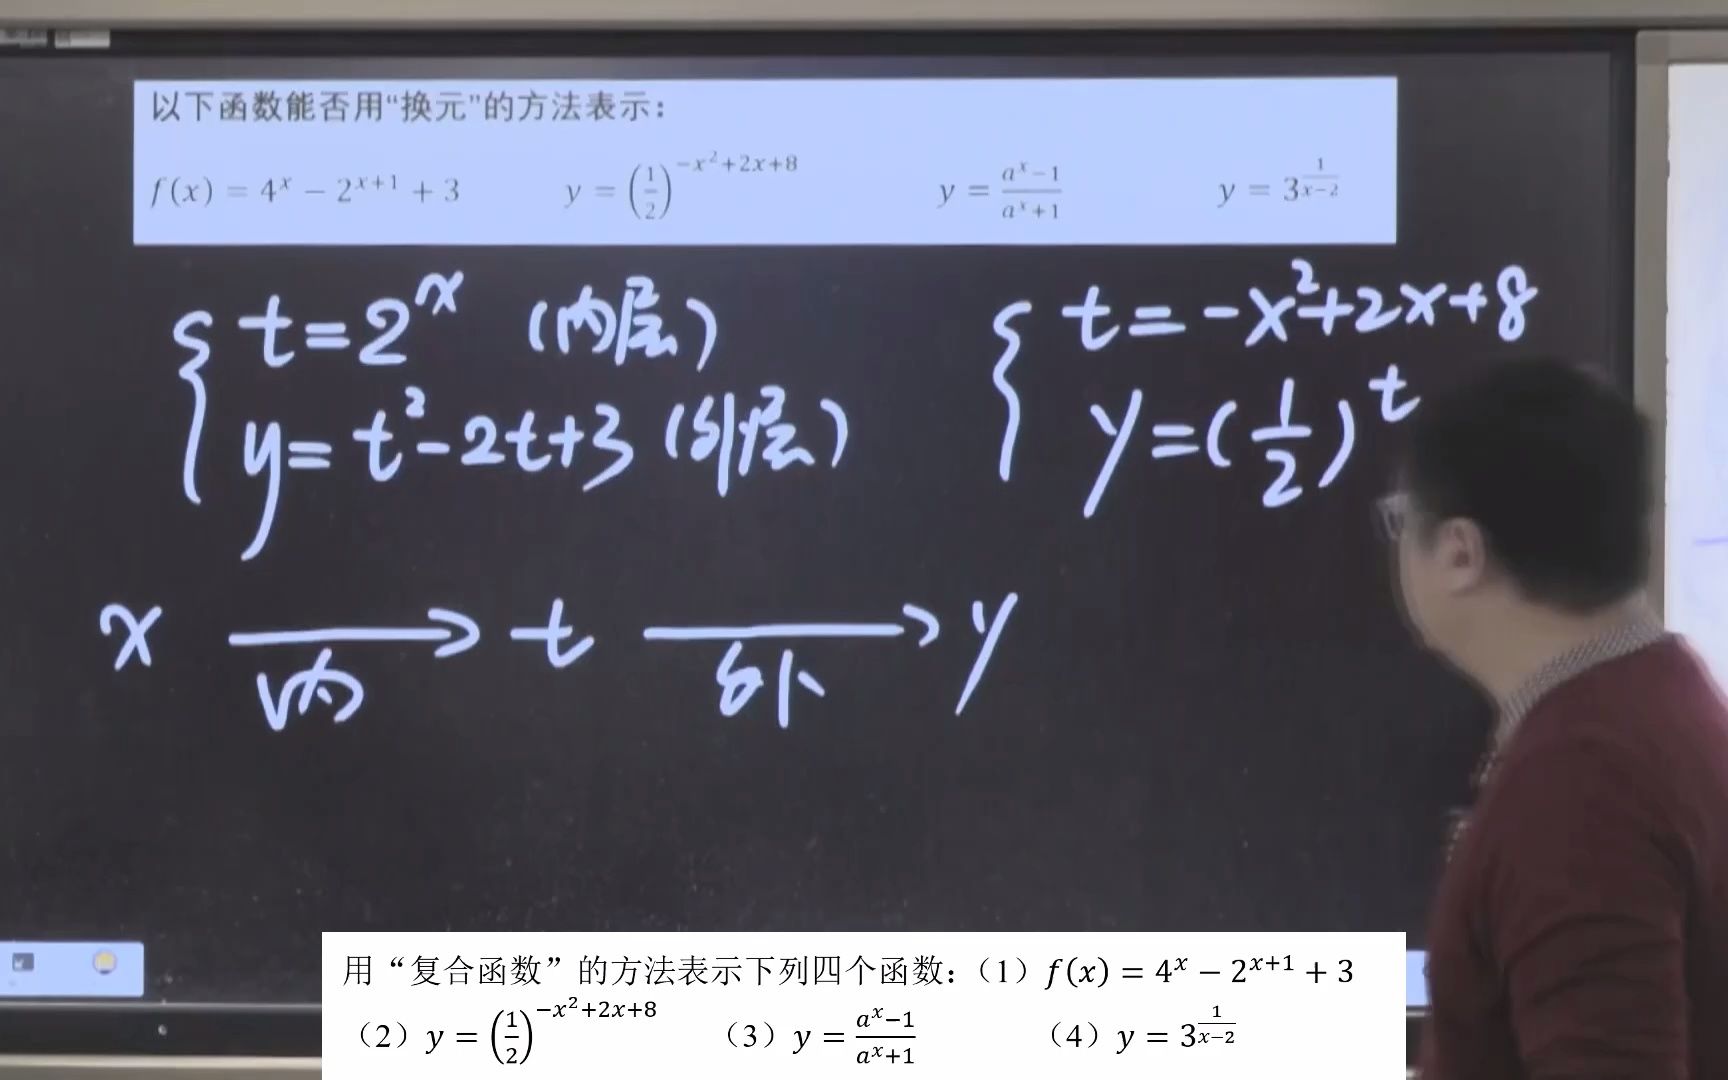 以下函数能否用“换元”的方法表示：
f(x) = 4^x − 2^{x+1} + 3 y = (1/2)^{−x²+2x+8} y = (a^x−1)/(a^x+1) y = 3^{1/(x−2)}
{ t = 2^x （内层） { t = −x²+2x+8
y = t²−2t+3 （外层） y = (1/2)^t
x →内 t →外 y
用“复合函数”的方法表示下列四个函数：（1）f(x) = 4^x − 2^{x+1} + 3
（2）y = (1/2)^{−x²+2x+8} （3）y = (a^x−1)/(a^x+1) （4）y = 3^{1/(x−2)}